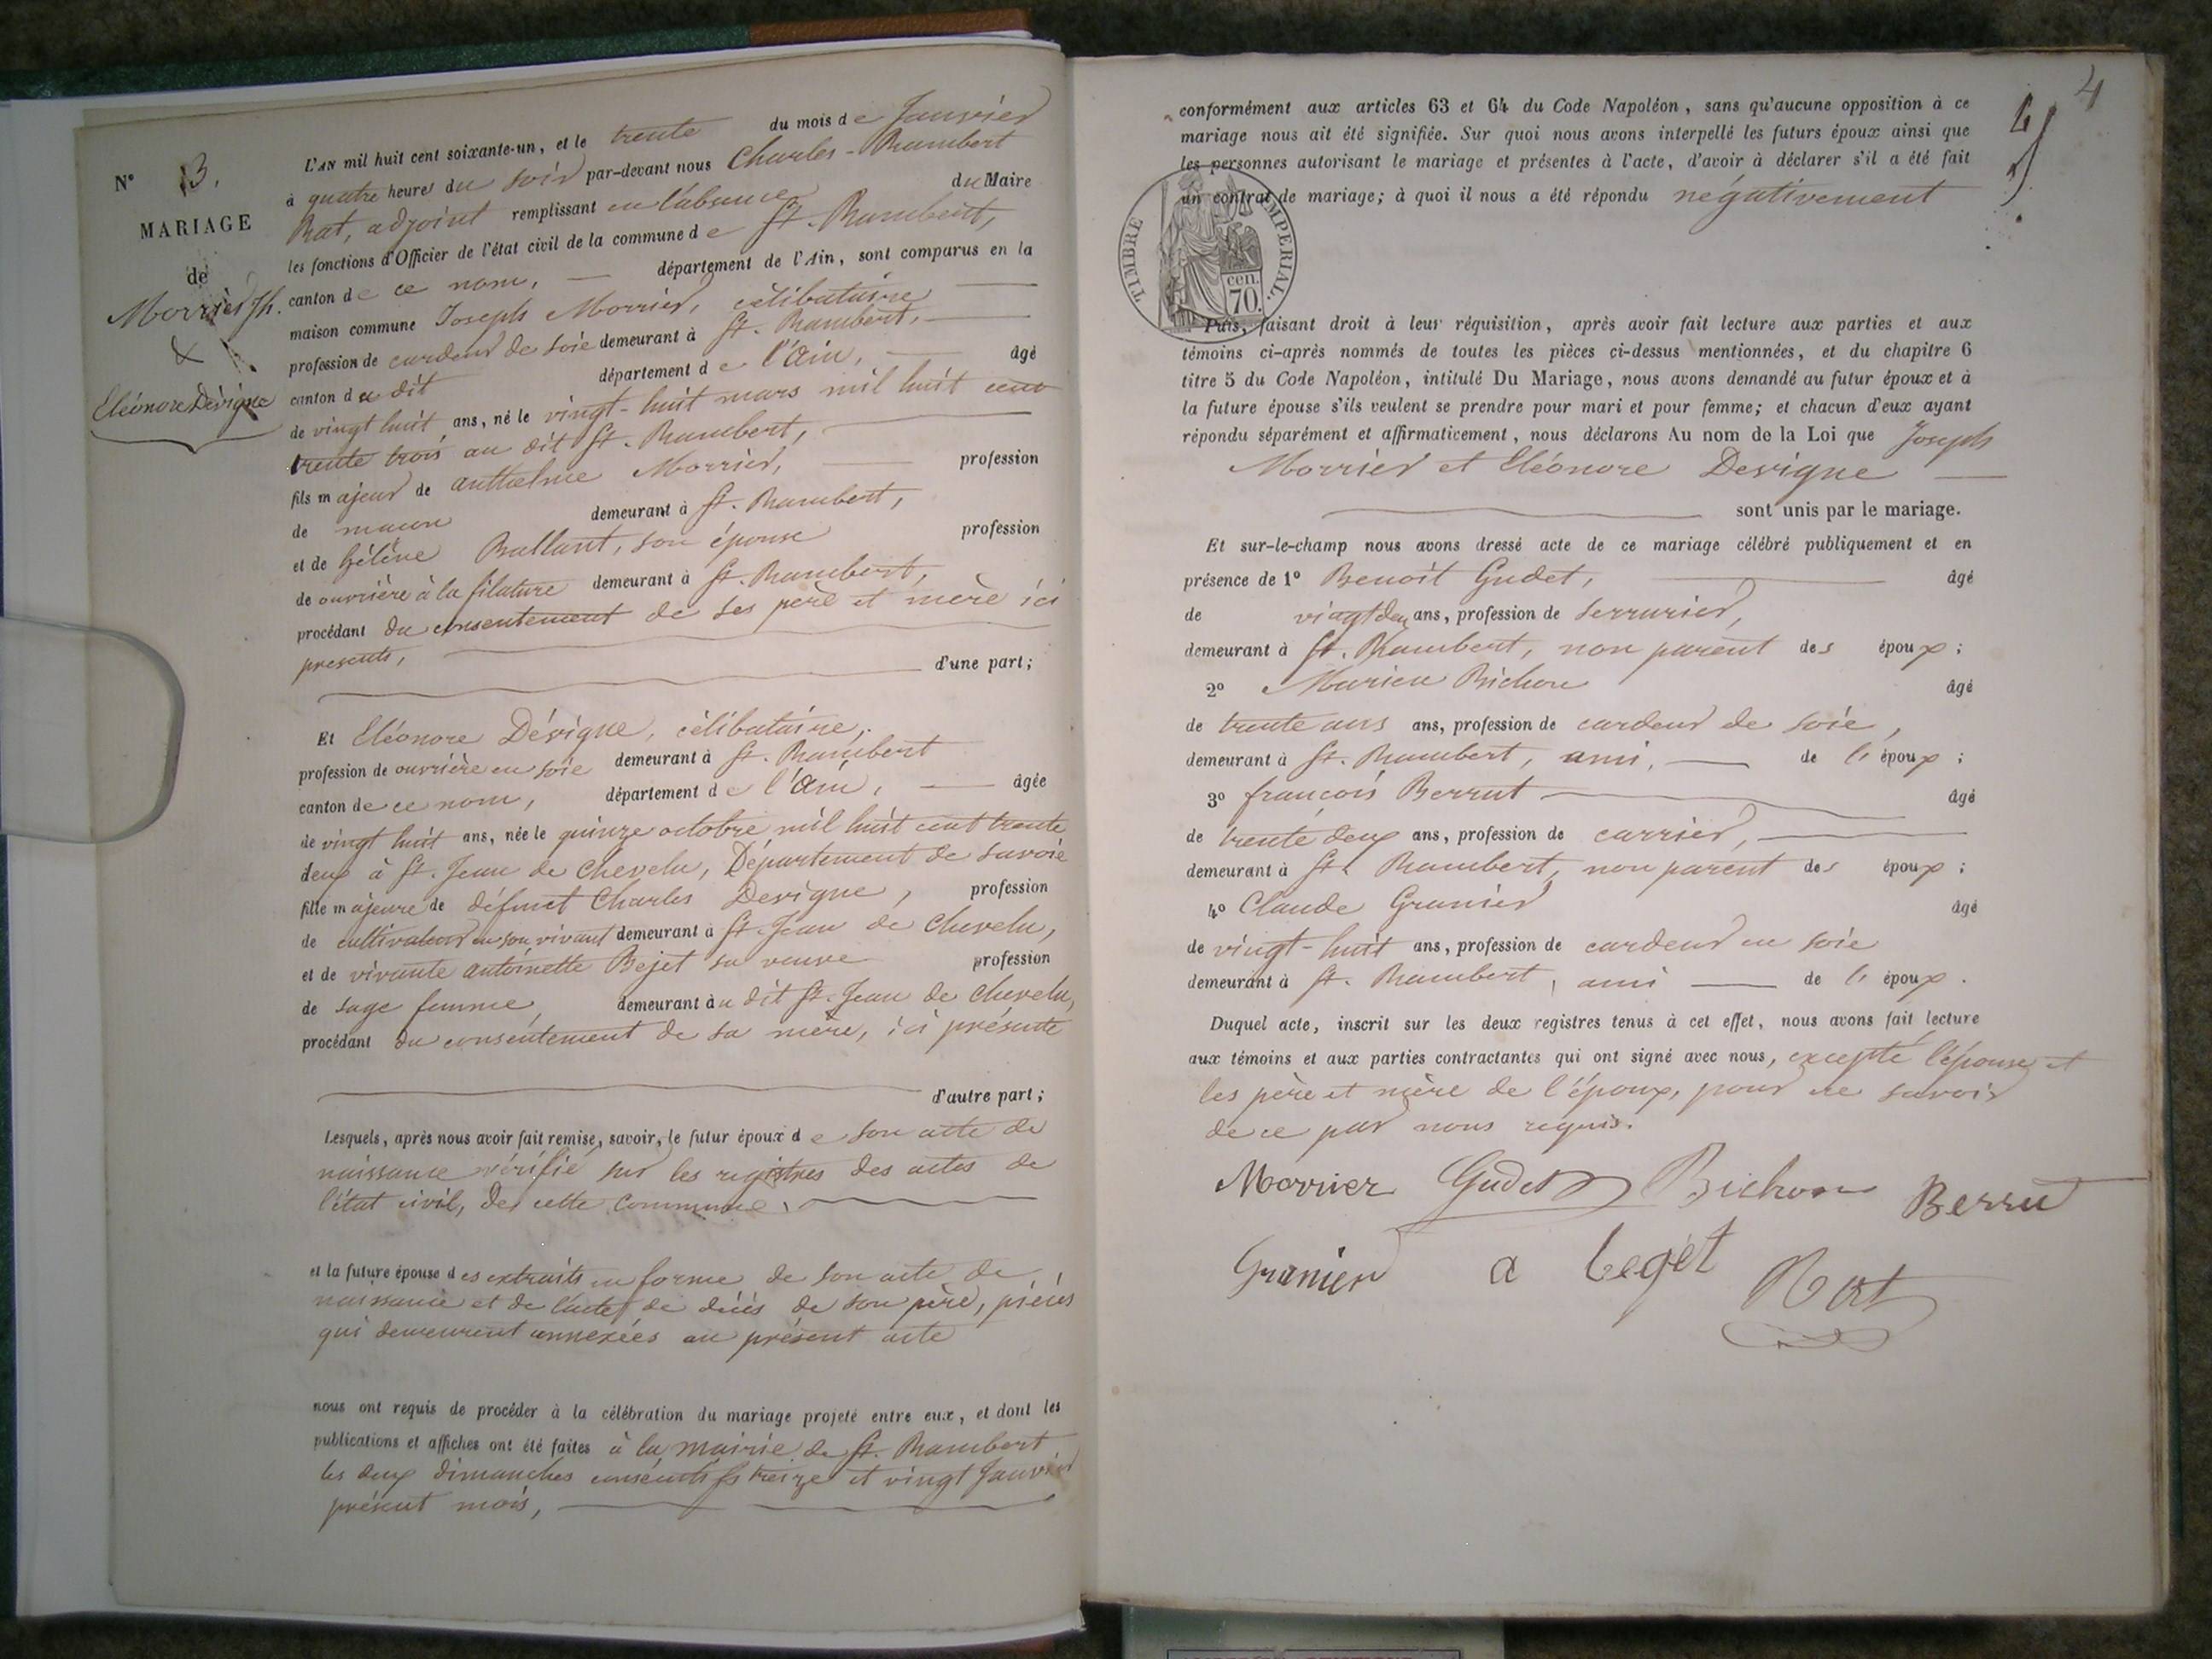 N° 3.
MARIAGE
de
Morrier Jh.
&
Eléonore Dévigne
L'AN mil huit cent soixante-un, et le trente du mois de Janvier
à quatre heures du soir par-devant nous Charles-Rambert
Rat, adjoint remplissant en l'absence du Maire
les fonctions d'Officier de l'état civil de la commune de St. Rambert,
canton de ce nom, département de l'Ain, sont comparus en la
maison commune Joseph Morrier, célibataire
profession de cardeur de soie demeurant à St. Rambert,
canton du dit département de l'Ain, âgé
de vingt huit ans, né le vingt-huit mars mil huit cent
trente trois au dit St. Rambert,
fils majeur de anthelme Morrier, profession
de maçon demeurant à St. Rambert,
et de hélène Ballant, son épouse profession
de ouvrière à la filature demeurant à St. Rambert,
procédant du consentement de ses père et mère ici
présents,
d'une part;
Et Eléonore Dévigne, célibataire,
profession de ouvrière en soie demeurant à St. Rambert
canton de ce nom, département de l'Ain, âgée
de vingt huit ans, née le quinze octobre mil huit cent trente
deux à St. Jean de Chevelu, Département de Savoie
fille majeure de défunt Charles Devigne, profession
de cultivateur en son vivant demeurant à St. Jean de Chevelu,
et de vivante antoinette Bejet sa veuve profession
de sage femme, demeurant au dit St. Jean de Chevelu,
procédant du consentement de sa mère, ici présente
d'autre part;
Lesquels, après nous avoir fait remise, savoir, le futur époux de son acte de
naissance vérifié sur les registres des actes de
l'état civil, de cette commune,
et la future épouse des extraits en forme de son acte de
naissance et de l'acte de décès de son père, pièces
qui demeurent annexées au présent acte
nous ont requis de procéder à la célébration du mariage projeté entre eux, et dont les
publications et affiches ont été faites à la mairie de St. Rambert
les deux dimanches consécutifs treize et vingt Janvier
présent mois,
4
4
conformément aux articles 63 et 64 du Code Napoléon, sans qu'aucune opposition à ce
mariage nous ait été signifiée. Sur quoi nous avons interpellé les futurs époux ainsi que
les personnes autorisant le mariage et présentes à l'acte, d'avoir à déclarer s'il a été fait
un contrat de mariage; à quoi il nous a été répondu négativement
TIMBRE IMPERIAL.
cen.
70.
Puis, faisant droit à leur réquisition, après avoir fait lecture aux parties et aux
témoins ci-après nommés de toutes les pièces ci-dessus mentionnées, et du chapitre 6
titre 5 du Code Napoléon, intitulé Du Mariage, nous avons demandé au futur époux et à
la future épouse s'ils veulent se prendre pour mari et pour femme; et chacun d'eux ayant
répondu séparément et affirmativement, nous déclarons Au nom de la Loi que Joseph
Morrier et Eléonore Devigne
sont unis par le mariage.
Et sur-le-champ nous avons dressé acte de ce mariage célébré publiquement et en
présence de 1° Benoit Gudet, âgé
de vingt deux ans, profession de serrurier,
demeurant à St. Rambert, non parent des époux;
2° Marien Bichon âgé
de trente ans ans, profession de cardeur de soie,
demeurant à St. Rambert, ami, de l'époux;
3° françois Berrut âgé
de trente deux ans, profession de carrier,
demeurant à St. Rambert, non parent des époux;
4° Claude Granier âgé
de vingt-huit ans, profession de cardeur en soie
demeurant à St. Rambert, ami de l'époux.
Duquel acte, inscrit sur les deux registres tenus à cet effet, nous avons fait lecture
aux témoins et aux parties contractantes qui ont signé avec nous, excepté l'épouse et
les père et mère de l'époux, pour ne savoir
de ce par nous requis.
Morrier Gudet Bichon Berru
Granier a beget Rat